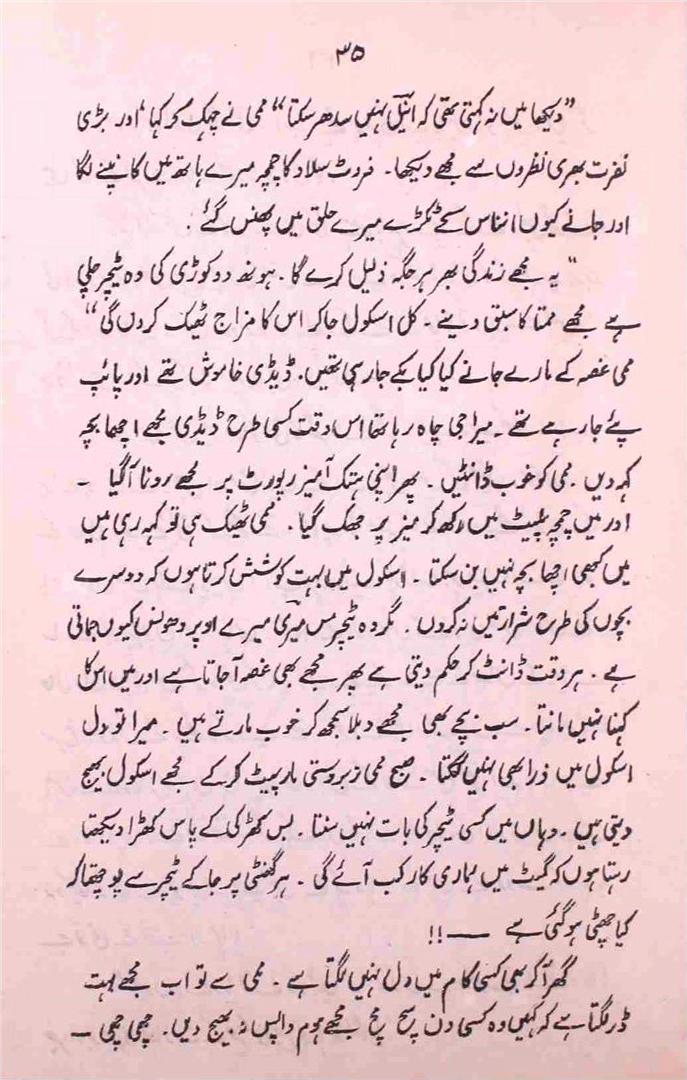 ۳۵
”دیکھا میں نہ کہتی تھی کہ انیل نہیں سدھر سکتا“ ممی نے چہک کر کہا ’اور بڑی
نفرت بھری نظروں سے مجھے دیکھا۔ فروٹ سلاد کا چمچہ میرے ہاتھ میں کانپنے لگا
اور جانے کیوں انناس کے ٹکڑے میرے حلق میں پھنس گئے۔
”یہ مجھے زندگی بھر ہر جگہ ذلیل کرے گا۔ ہونھ دو کوڑی کی وہ ٹیچر چلی
ہے مجھے ممتا کا سبق دینے۔ کل اسکول جاکر اس کا مزاج ٹھیک کردوں گی“
ممی غصہ کے مارے جانے کیا کیا بکے جارہی تھیں۔ ڈیڈی خاموش تھے اور پائپ
پئے جارہے تھے۔ میرا جی چاہ رہا تھا اس وقت کسی طرح ڈیڈی مجھے اچھا بچہ
کہہ دیں۔ ممی کو خوب ڈانٹیں۔ پھر اپنی ہتک آمیز رپورٹ پر مجھے رونا آگیا ۔
اور میں چمچہ پلیٹ میں رکھ کر میز پر جھک گیا۔ ممی ٹھیک ہی تو کہہ رہی ہیں
میں کبھی اچھا بچہ نہیں بن سکتا۔ اسکول میں بہت کوشش کرتا ہوں کہ دوسرے
بچوں کی طرح شرارتیں نہ کروں۔ مگر وہ ٹیچر مس میری میرے اوپر دھونس کیوں جماتی
ہے۔ ہر وقت ڈانٹ کر حکم دیتی ہے پھر مجھے بھی غصہ آجاتا ہے اور میں اس کا
کہنا نہیں مانتا۔ سب بچے بھی مجھے دبلا سمجھ کر خوب مارتے ہیں۔ میرا تو دل
اسکول میں ذرا بھی نہیں لگتا۔ صبح ممی زبردستی مار پیٹ کرکے مجھے اسکول بھیج
دیتی ہیں۔ وہاں میں کسی ٹیچر کی بات نہیں سنتا۔ بس کھڑکی کے پاس کھڑا دیکھتا
رہتا ہوں کہ گیٹ میں ہماری کار کب آئے گی۔ ہر گھنٹی پر جاکے ٹیچر سے پوچھتا کہ
کیا چھٹی ہوگئی ہے ——!!
گھر آکر بھی کسی کام میں دل نہیں لگتا ہے۔ ممی سے تو اب مجھے بہت
ڈر لگتا ہے کہ کہیں وہ کسی دن سچ مچ مجھے ہوم واپس نہ بھیج دیں۔ چھی چھی —